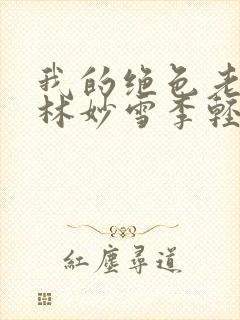 我的绝色老
林妙雪季轻
红塵尋道